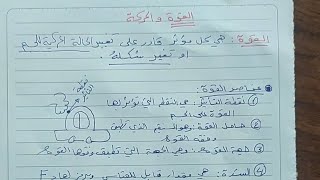 القوة والحركة
القوة: هي كل مؤثر قادر على تغيير الحالة الحركية للجسم
او تغير شكله.
عناصر القوة:
① نقطة التأثير: هي النقطة التي تؤثر بها
القوة على الجسم
② حامل القوة: هو المستقيم الذي
وفقه القوة
③ جهة القوة: وهي الجهة التي وفقها القوة
④ الشدة: هي مقدار قابل للقياس F